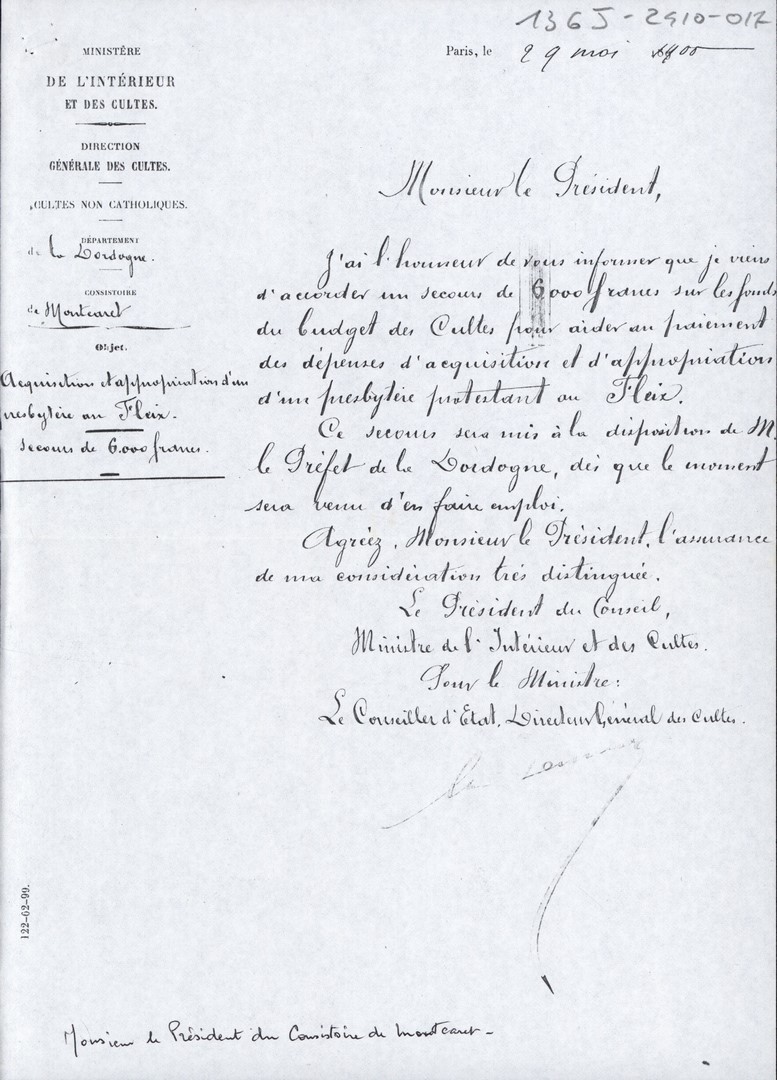 136J-2910-017
MINISTÈRE
DE L'INTÉRIEUR
ET DES CULTES.
DIRECTION
GÉNÉRALE DES CULTES.
CULTES NON CATHOLIQUES.
DÉPARTEMENT
de la Dordogne.
CONSISTOIRE
de Montcaret
Objet.
Acquisition et appropriation d'un
presbytère au Fleix.
Secours de 6.000 francs.
Paris, le 29 mai 1900
Monsieur le Président,
J'ai l'honneur de vous informer que je viens
d'accorder un secours de 6.000 francs sur les fonds
du budget des Cultes pour aider au paiement
des dépenses d'acquisition et d'appropriation
d'un presbytère protestant au Fleix.
Ce secours sera mis à la disposition de M.
le Préfet de la Dordogne, dès que le moment
sera venu d'en faire emploi.
Agréez, Monsieur le Président, l'assurance
de ma considération très distinguée.
Le Président du Conseil,
Ministre de l'Intérieur et des Cultes.
Pour le Ministre:
Le Conseiller d'Etat, Directeur Général des Cultes.
122-62-99.
Monsieur le Président du Consistoire de Montcaret -